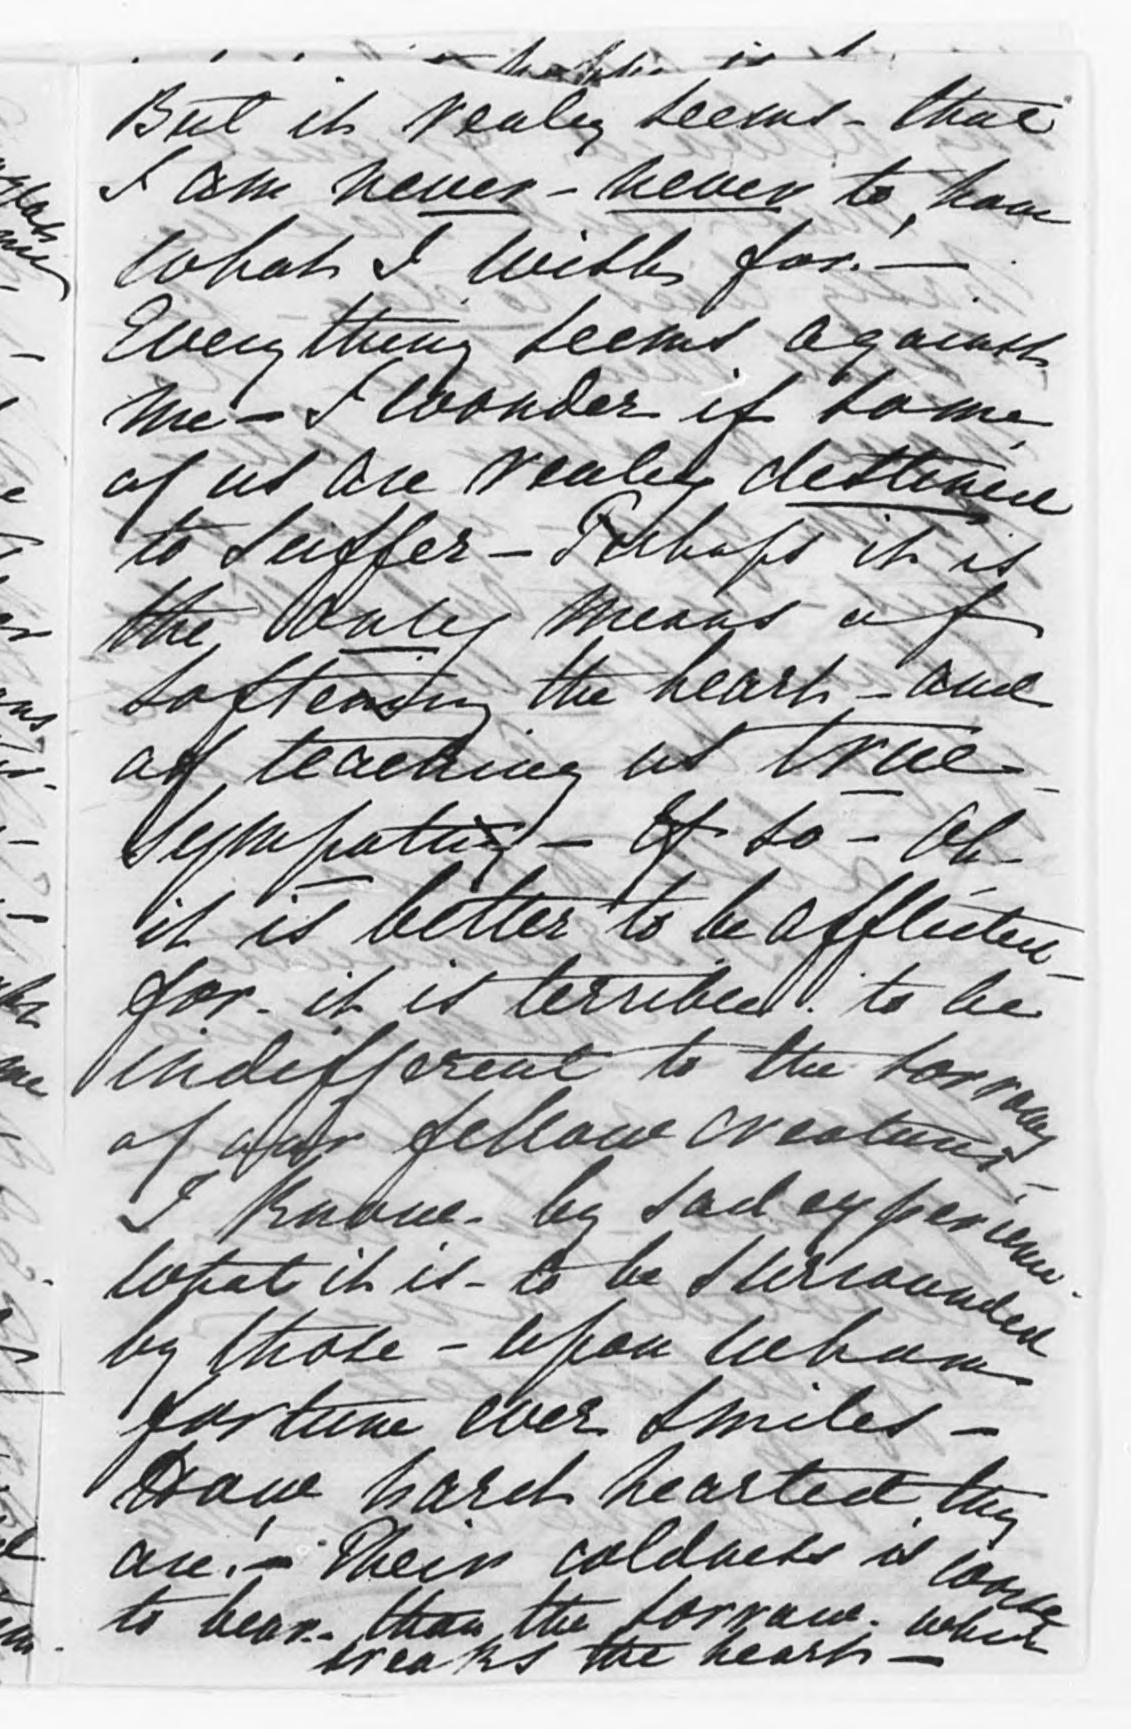 But it realy seems - that
I am never - never to have
what I wish for. -
Everything seems against
me - I wonder if some
of us are realy destined
to suffer - Perhaps it is
the only means of
softening the heart - and
of teaching us true
sympathy - If so - Oh -
it is better to be afflicted -
for - it is terrible to be
indifferent to the sorrows
of our fellow creatures -
I know - by sad experience
what it is - to be surrounded
by those - upon whom
fortune ever smiles -
How hard hearted they
are! - Their coldness is worse
to bear - than the sorrow - which
breaks the heart -